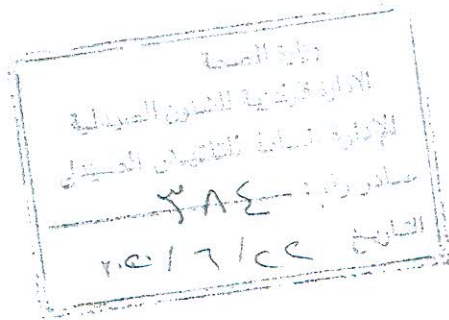 وزارة الصحة
الإدارة المركزية للشئون الصيدلية
الإدارة العامة للتفتيش الصيدلى
صادر رقم : ٣٨٤
التاريخ ٢٢ / ٦ / ٢٠٢٠